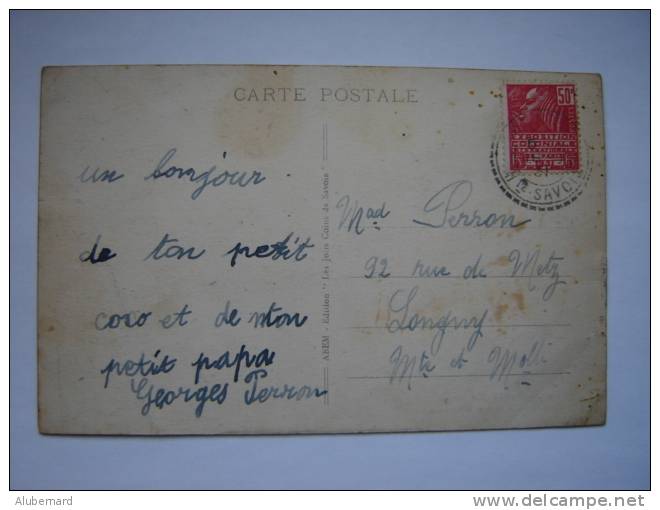 CARTE POSTALE
50c
EXPOSITION
COLONIALE
INTERNATIONALE
PARIS
1931
SAVOIE
un bonjour
de ton petit
coco et de mon
petit papa
Georges Perron
ABEM - Edition "Les Jolis Coins de Savoie"
Mad Perron
92 rue de Metz
Longwy
Mte et Mlle
Alubernard
www.delcampe.net